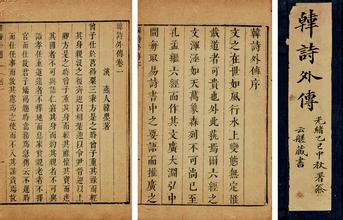 韓詩外傳
光緒乙巳中秋署簽
藏書
韓詩外傳序
文之在世如風行水上變態無定惟
載道者可貴外此爾六經之
文渾涵如天萬象森列不可尚已
孔孟繼六經而作其文廣大淵弘中
間亦取易詩書中之要語而推廣之
韓詩外傳卷一
漢 燕人韓嬰著
曾子仕於莒得粟三秉方是之時曾子重其祿而輕
其身親沒之後齊迎以相楚迎以令尹晉迎以上
卿方是之時曾子重其身而輕其祿懷其寶而迷
其國者不可與語仁窘其身而約其親者不可與
語孝任重道遠者不擇地而息家貧親老者不擇
官而仕故君子橋褐趨時當務為急傳云不逢時
而仕任事而敦其慮為之使而不入其謀貧焉故